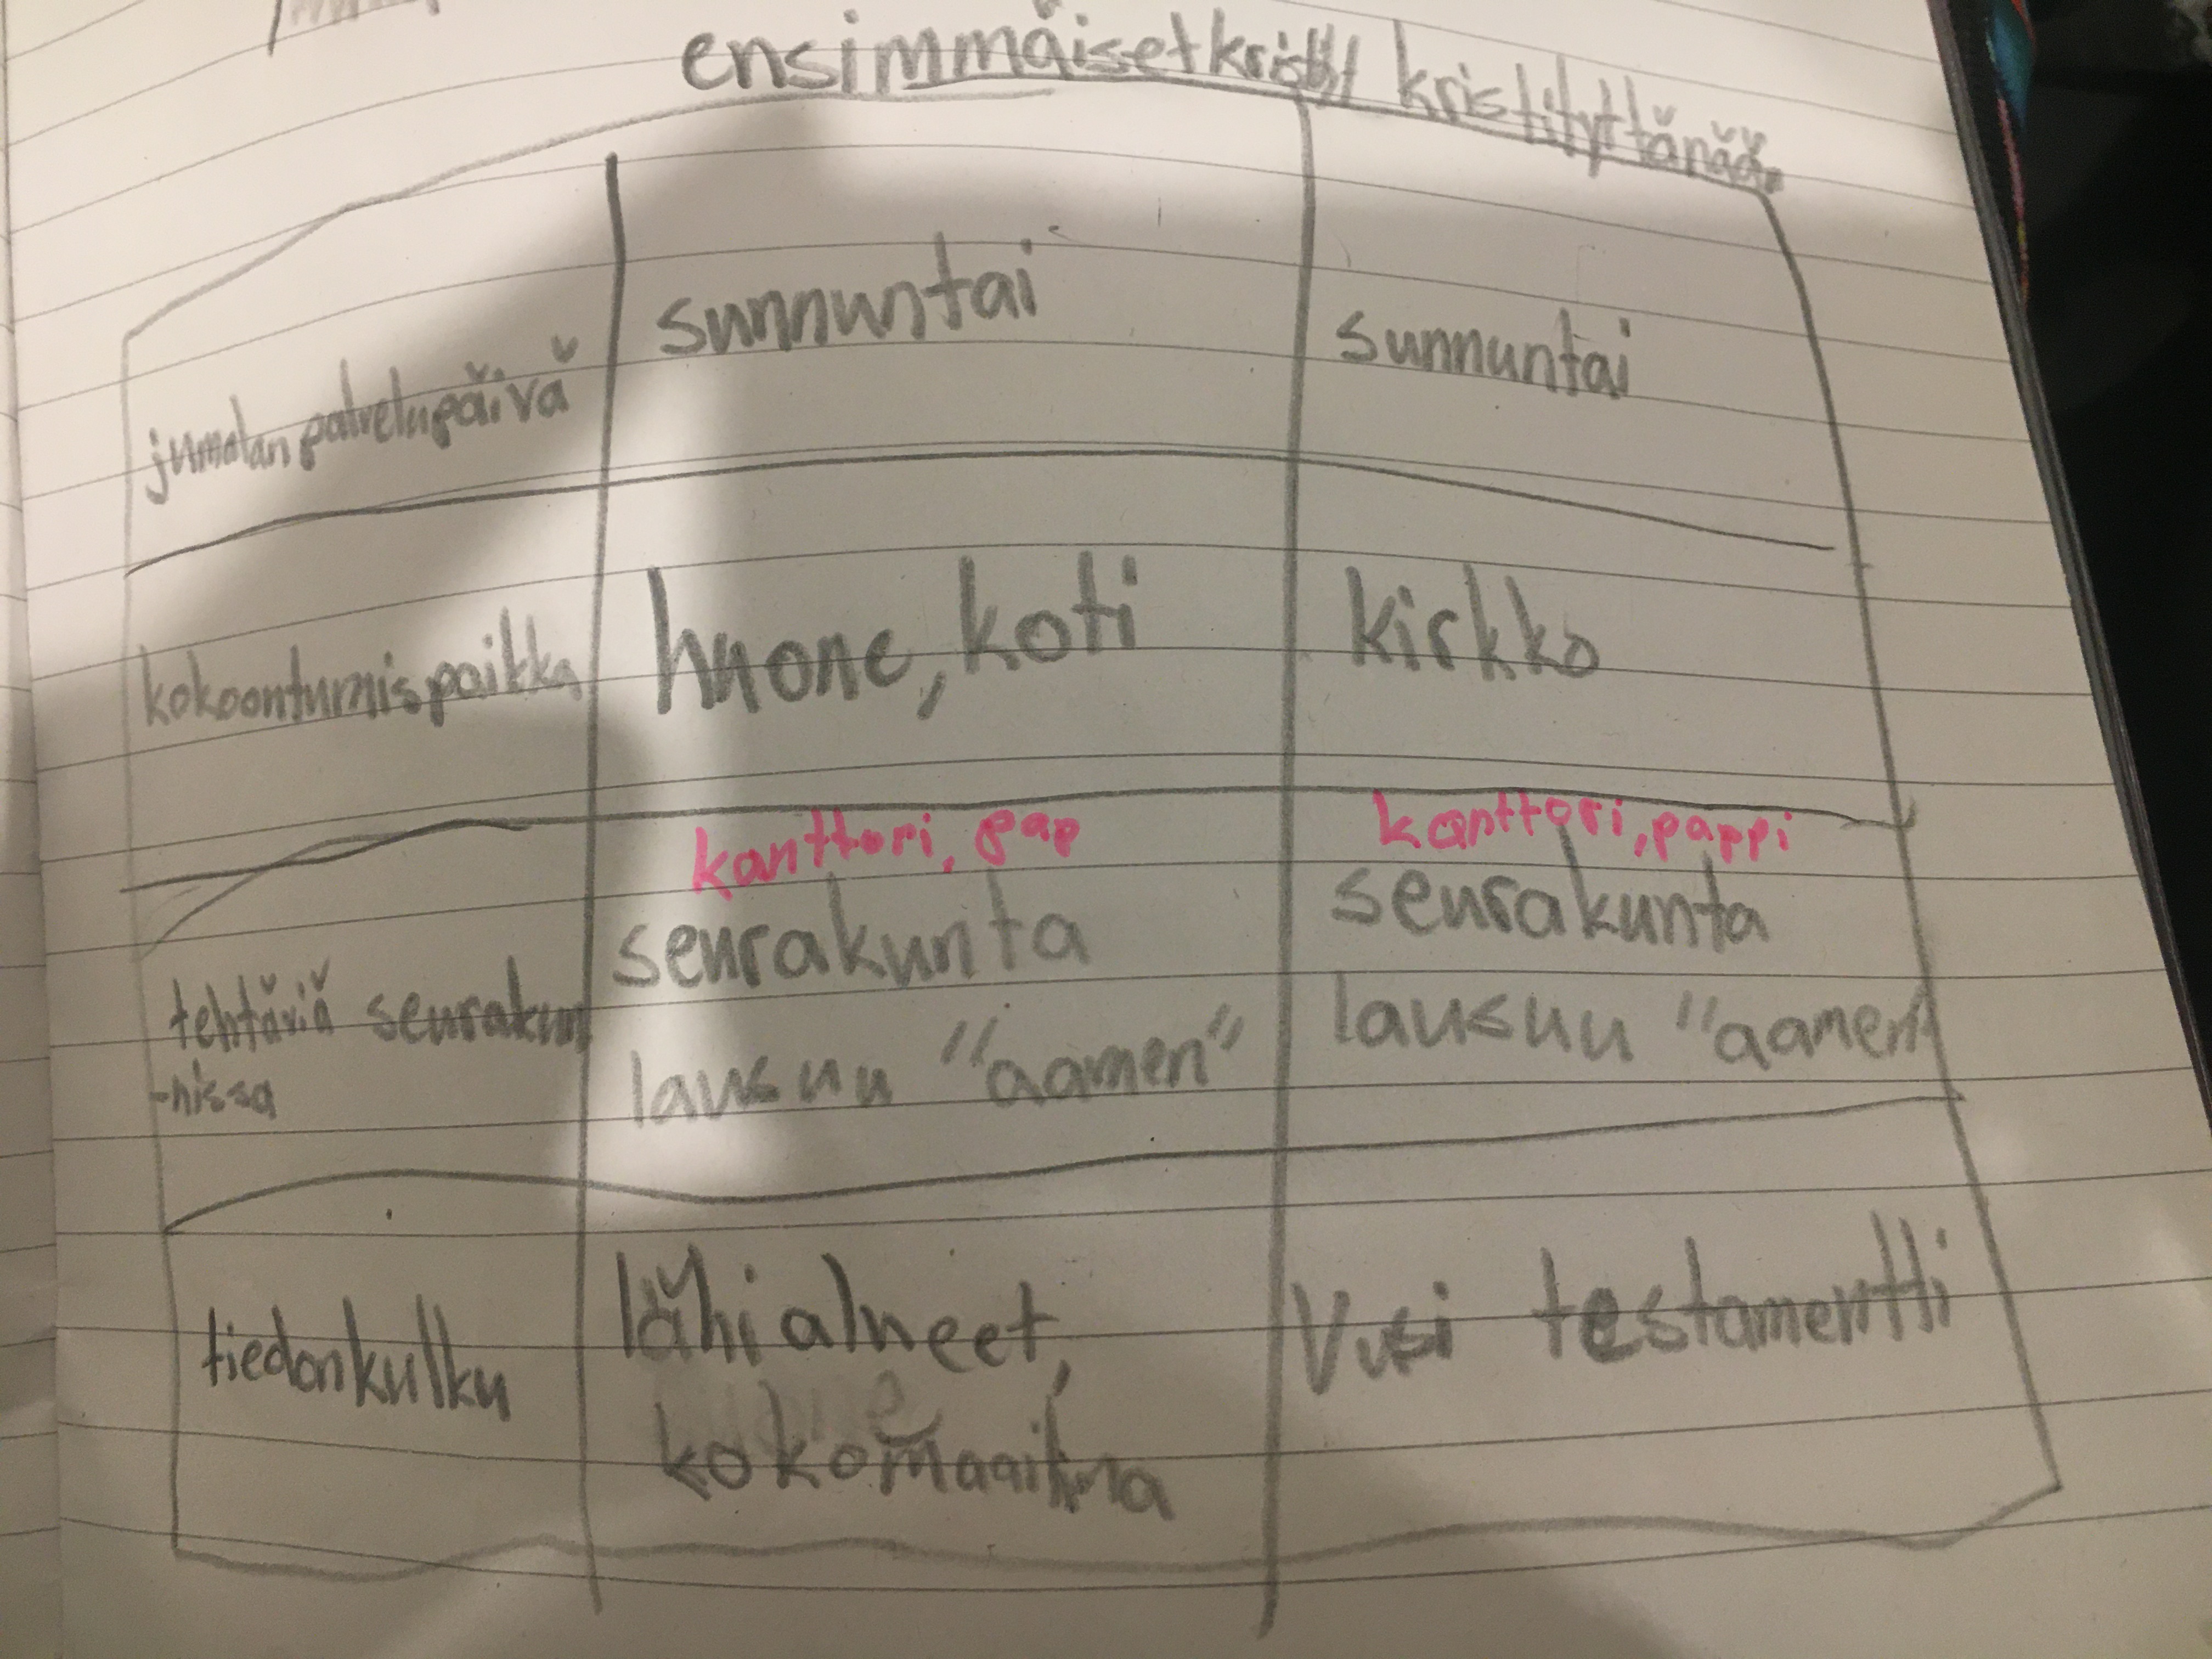 ensimmäisetkrist kristityttänää
jumalanpalvelupäivä
sunnuntai
sunnuntai
kokoontumispaikka
huone, koti
kirkko
tehtäviä seurakun
-nissa
kanttori, pap
seurakunta
lausuu "aamen"
kanttori, pappi
seurakunta
lausuu "aamen"
tiedonkulku
lähialueet,
kokomaailma
Uusi testamentti